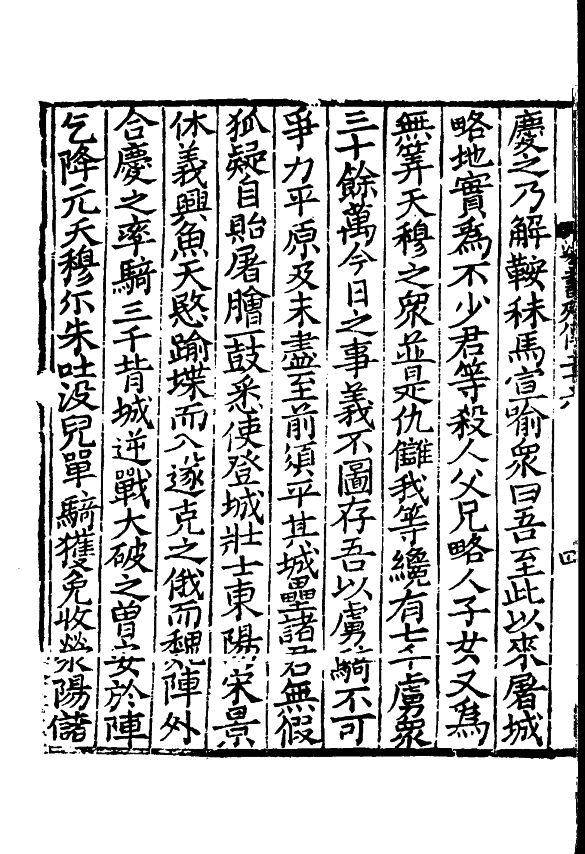 慶之乃解鞍秣馬宣喻衆曰吾至此以來屠城
略地實爲不少君等殺人父兄略人子女又爲
無筭天穆之衆並是仇讎我等纔有七千虜衆
三十餘萬今日之事義不圖存吾以虜騎不可
爭力平原及未盡至前須平其城壘諸君無假
狐疑自貽屠膾一鼓悉使登城壯士東陽宋景
休義興魚天愍踰堞而入遂克之俄而魏陣外
合慶之率騎三千背城逆戰大破之魯安於陣
乞降元天穆尒朱吐没兒單騎獲免收滎陽儲